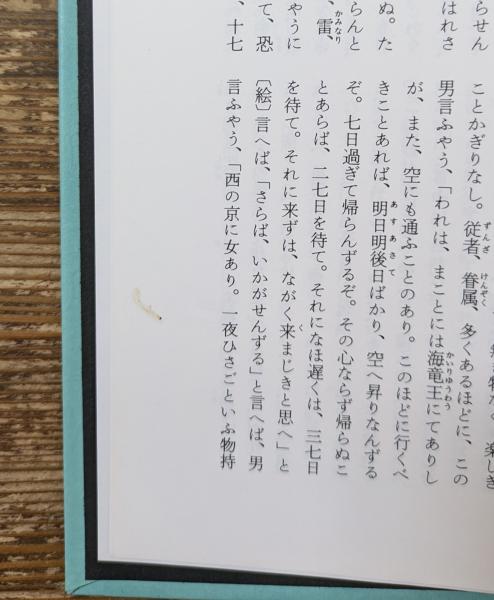 らせん
はれさ
ぬ。た
らんと
、雷、
やうに
て、恐
、十七
楽しき
ことかぎりなし。従者、眷属、多くあるほどに、この
男言ふやう、「われは、まことには海竜王にてありし
が、また、空にも通ふことのあり。このほどに行くべ
きことあれば、明日明後日ばかり、空へ昇りなんずる
ぞ。七日過ぎて帰らんずるぞ。その心ならず帰らぬこ
とあらば、二七日を待て。それになほ遅くは、三七日
を待て。それに来ずは、ながく来まじきと思へ」と
〔絵〕言へば、「さらば、いかがせんずる」と言へば、男
言ふやう、「西の京に女あり。一夜ひさごといふ物持